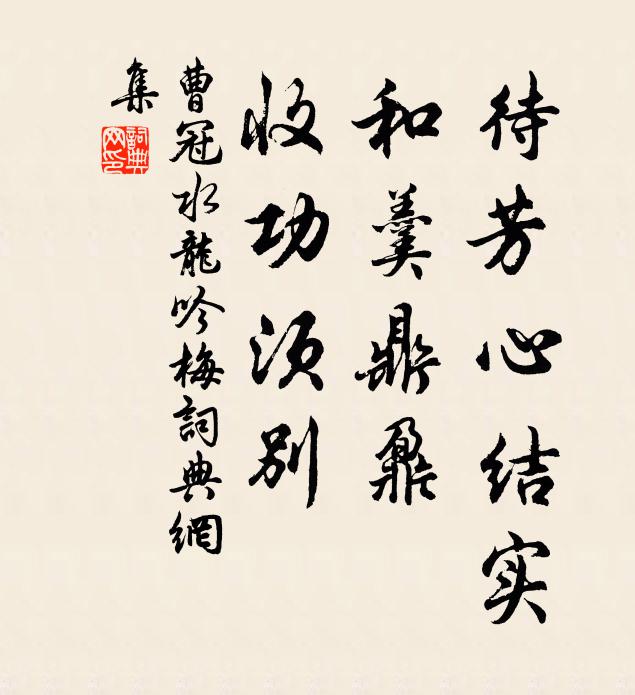 待芳心结实
和羹鼎鼐
收功须别
曹冠水龍吟梅詞典網
集
詞典
网印